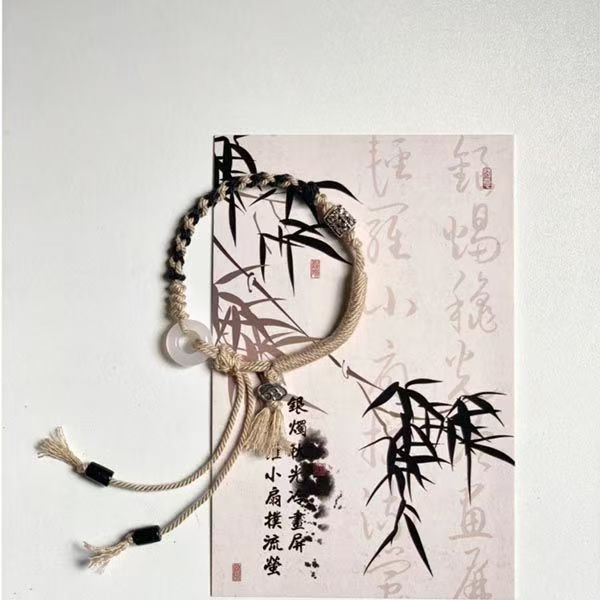 銀燭秋光畫屏
輕羅小扇撲流螢
銀燭秋光冷畫屏
羅小扇撲流螢